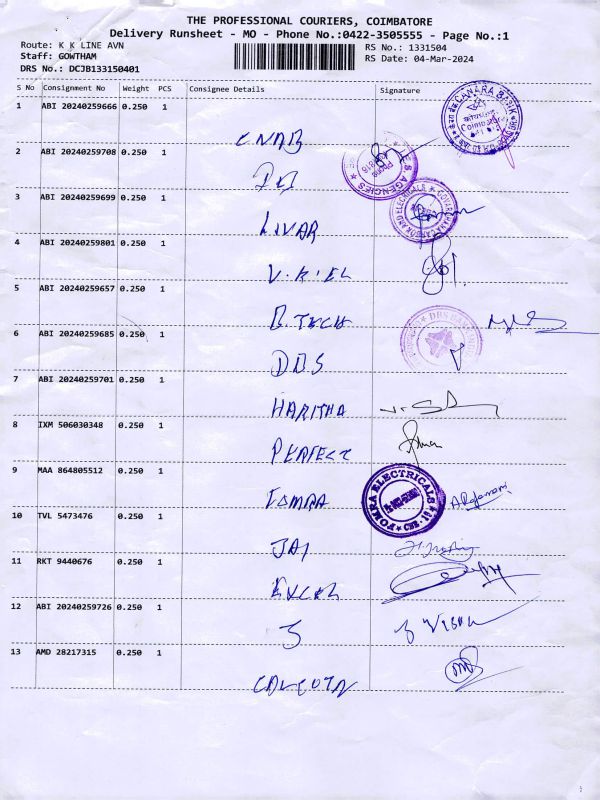 THE PROFESSIONAL COURIERS, COIMBATORE
Delivery Runsheet - MO - Phone No.:0422-3505555 - Page No.:1
Route: K K LINE AVN
RS No.: 1331504
Staff: GOWTHAM
RS Date: 04-Mar-2024
DRS No.: DCJB133150401
S No Consignment No Weight PCS Consignee Details Signature
1 ABI 20240259666 0.250 1 CANARA BANK
CNAB
2 ABI 20240259708 0.250 1 AGENCIES
3 ABI 20240259699 0.250 1
LIVAR
4 ABI 20240259801 0.250 1
V.KIEL
5 ABI 20240259657 0.250 1
B.TECH
6 ABI 20240259685 0.250 1
DBS
7 ABI 20240259701 0.250 1
HARITHA
8 IXM 506030348 0.250 1
PERFECT
9 MAA 864805512 0.250 1 FOMRA ELECTRICALS
FOMRA
10 TVL 5473476 0.250 1
JAI
11 RKT 9440676 0.250 1
EXCEL
12 ABI 20240259726 0.250 1
13 AMD 28217315 0.250 1